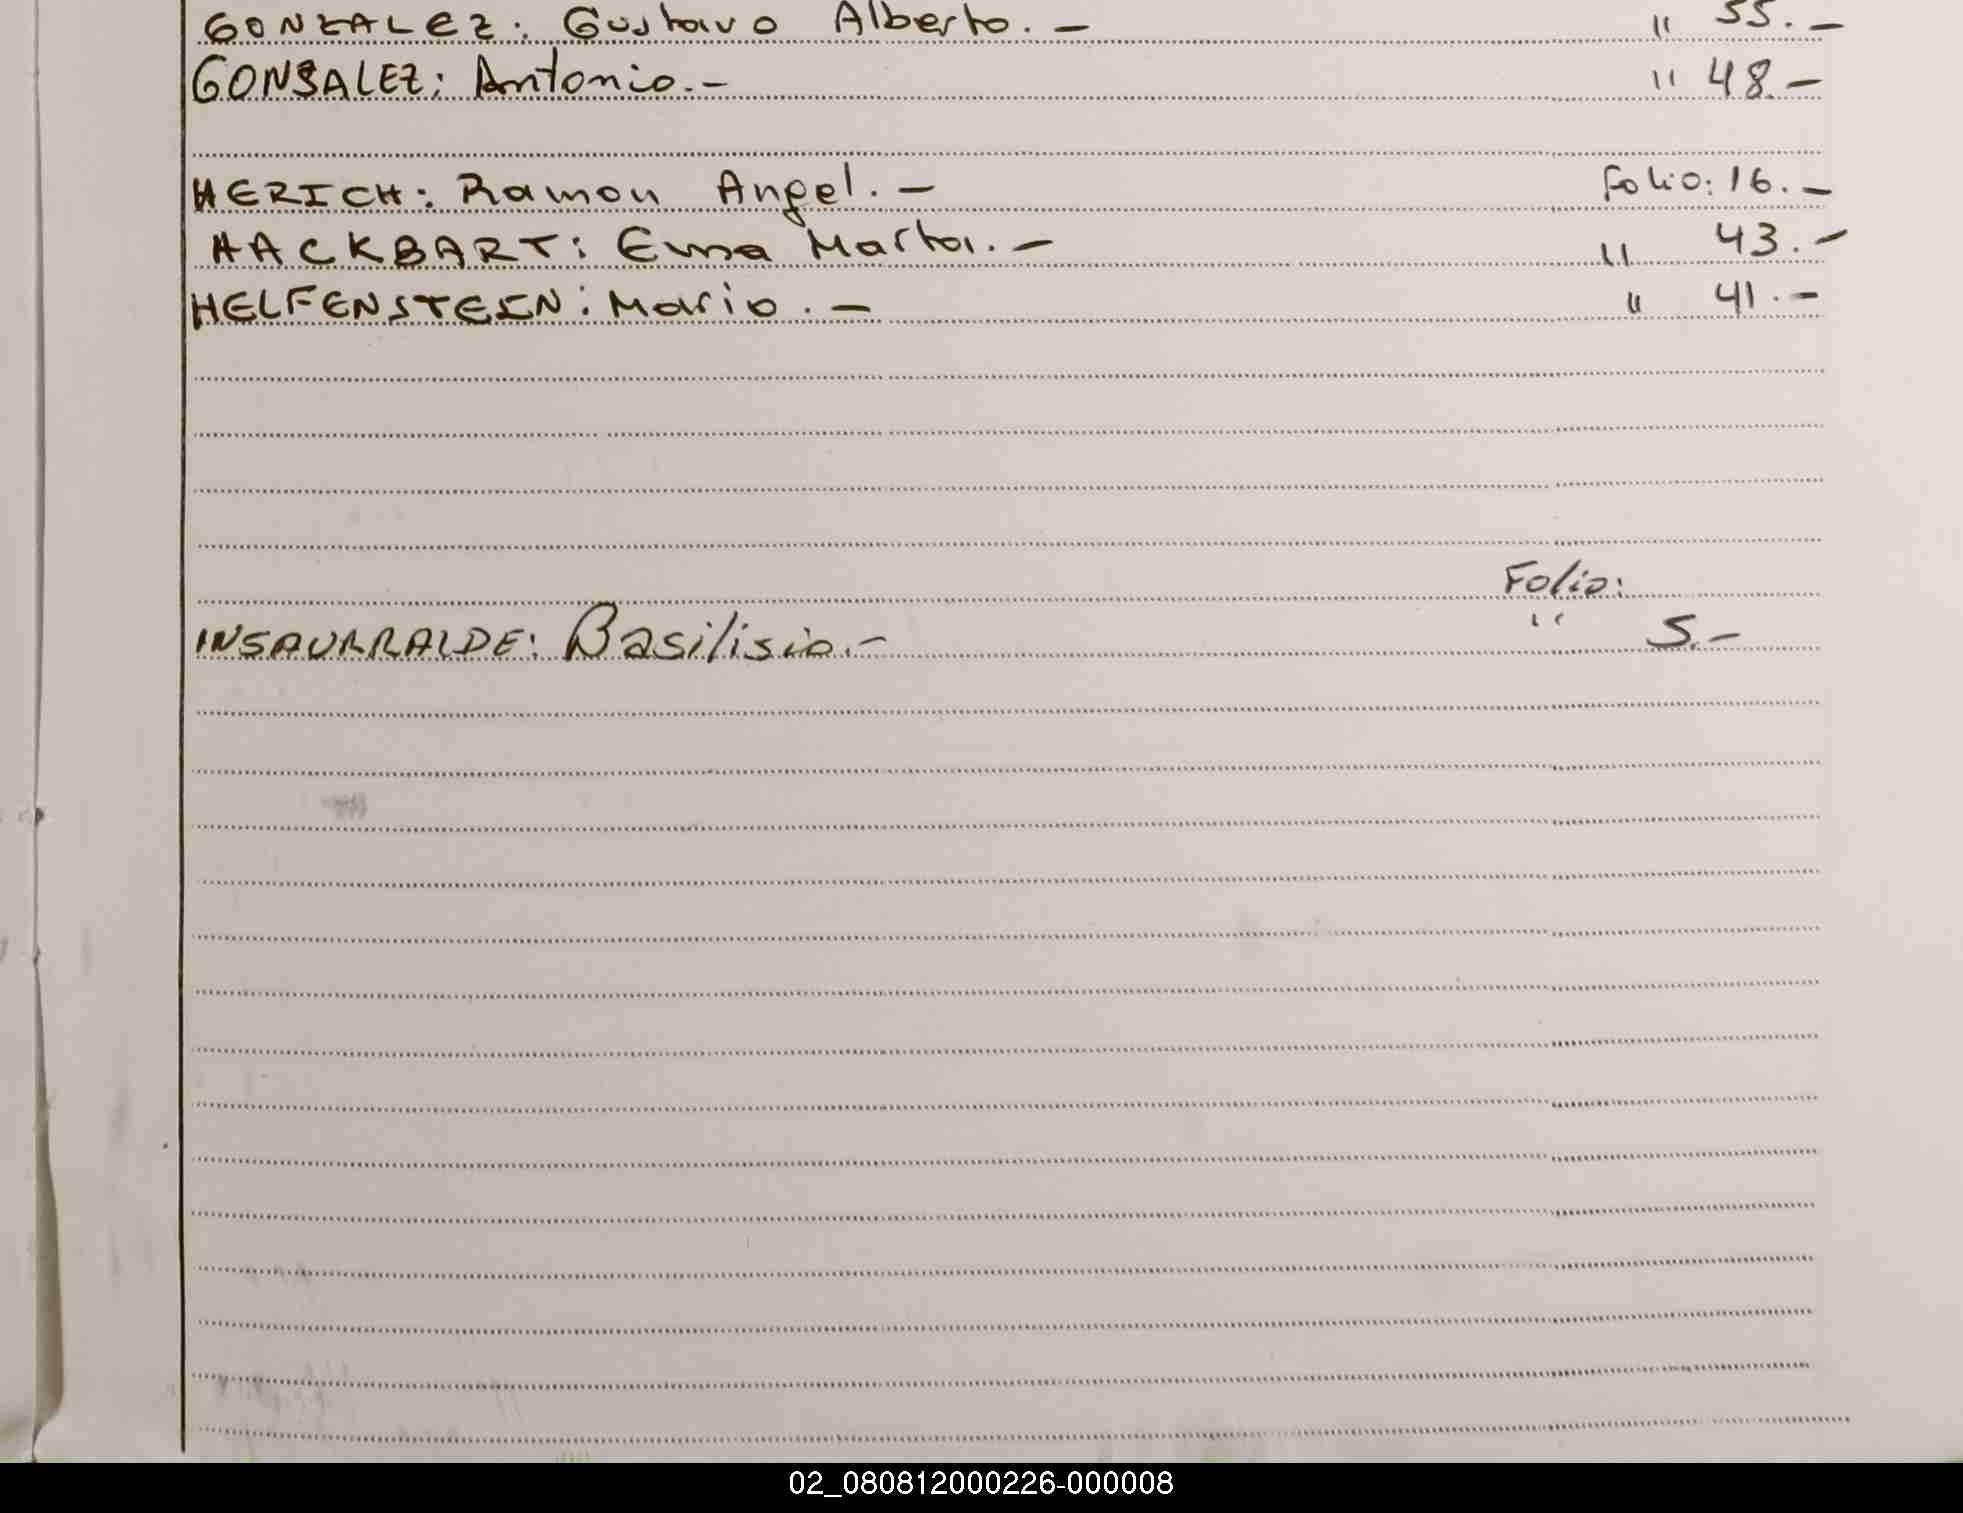 GONZALEZ: Gustavo Alberto.- " 55.-
GONSALEZ: Antonio.- " 48.-
HERICH: Ramon Angel.- Folio: 16.-
HACKBART: Elsa Marta.- " 43.-
HELFENSTEIN: Mario.- " 41.-
Folio:
INSAURRALDE: Basilisio.- " 5.-
02_080812000226-000008